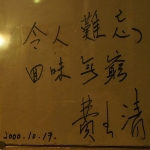 令人難忘
回味無窮
費玉清
2000.10.17.